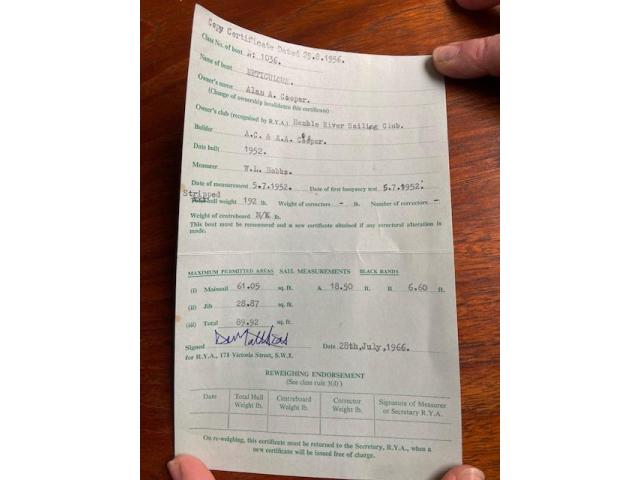 Copy Certificate Dated 25.8.1956.
Class No. of boat N: 1036.
Name of boat
Owner's name Alan A. Cooper.
(Change of ownership invalidates this certificate)
Owner's club (recognised by R.Y.A.) Hamble River Sailing Club.
Builder A.C. & A.A. Cooper.
Date built 1952.
Measurer W.L. Hobbs.
Date of measurement 5.7.1952. Date of first buoyancy test 5.7.1952.
Stripped
hull weight 192 lb. Weight of correctors - lb. Number of correctors -
Weight of centreboard N/K lb.
This boat must be remeasured and a new certificate obtained if any structural alteration is
made.
MAXIMUM PERMITTED AREAS SAIL MEASUREMENTS BLACK BANDS
(i) Mainsail 61.05 sq. ft. A 18.50 ft. B 6.60 ft.
(ii) Jib 28.87 sq. ft.
(iii) Total 89.92 sq. ft.
Signed Date 28th,July,1966.
for R.Y.A., 171 Victoria Street, S.W.1.
REWEIGHING ENDORSEMENT
(See class rule 3(d))
Date Total Hull Weight lb. Centreboard Weight lb. Corrector Weight lb. Signature of Measurer or Secretary R.Y.A.
On re-weighing, this certificate must be returned to the Secretary, R.Y.A., when a
new certificate will be issued free of charge.